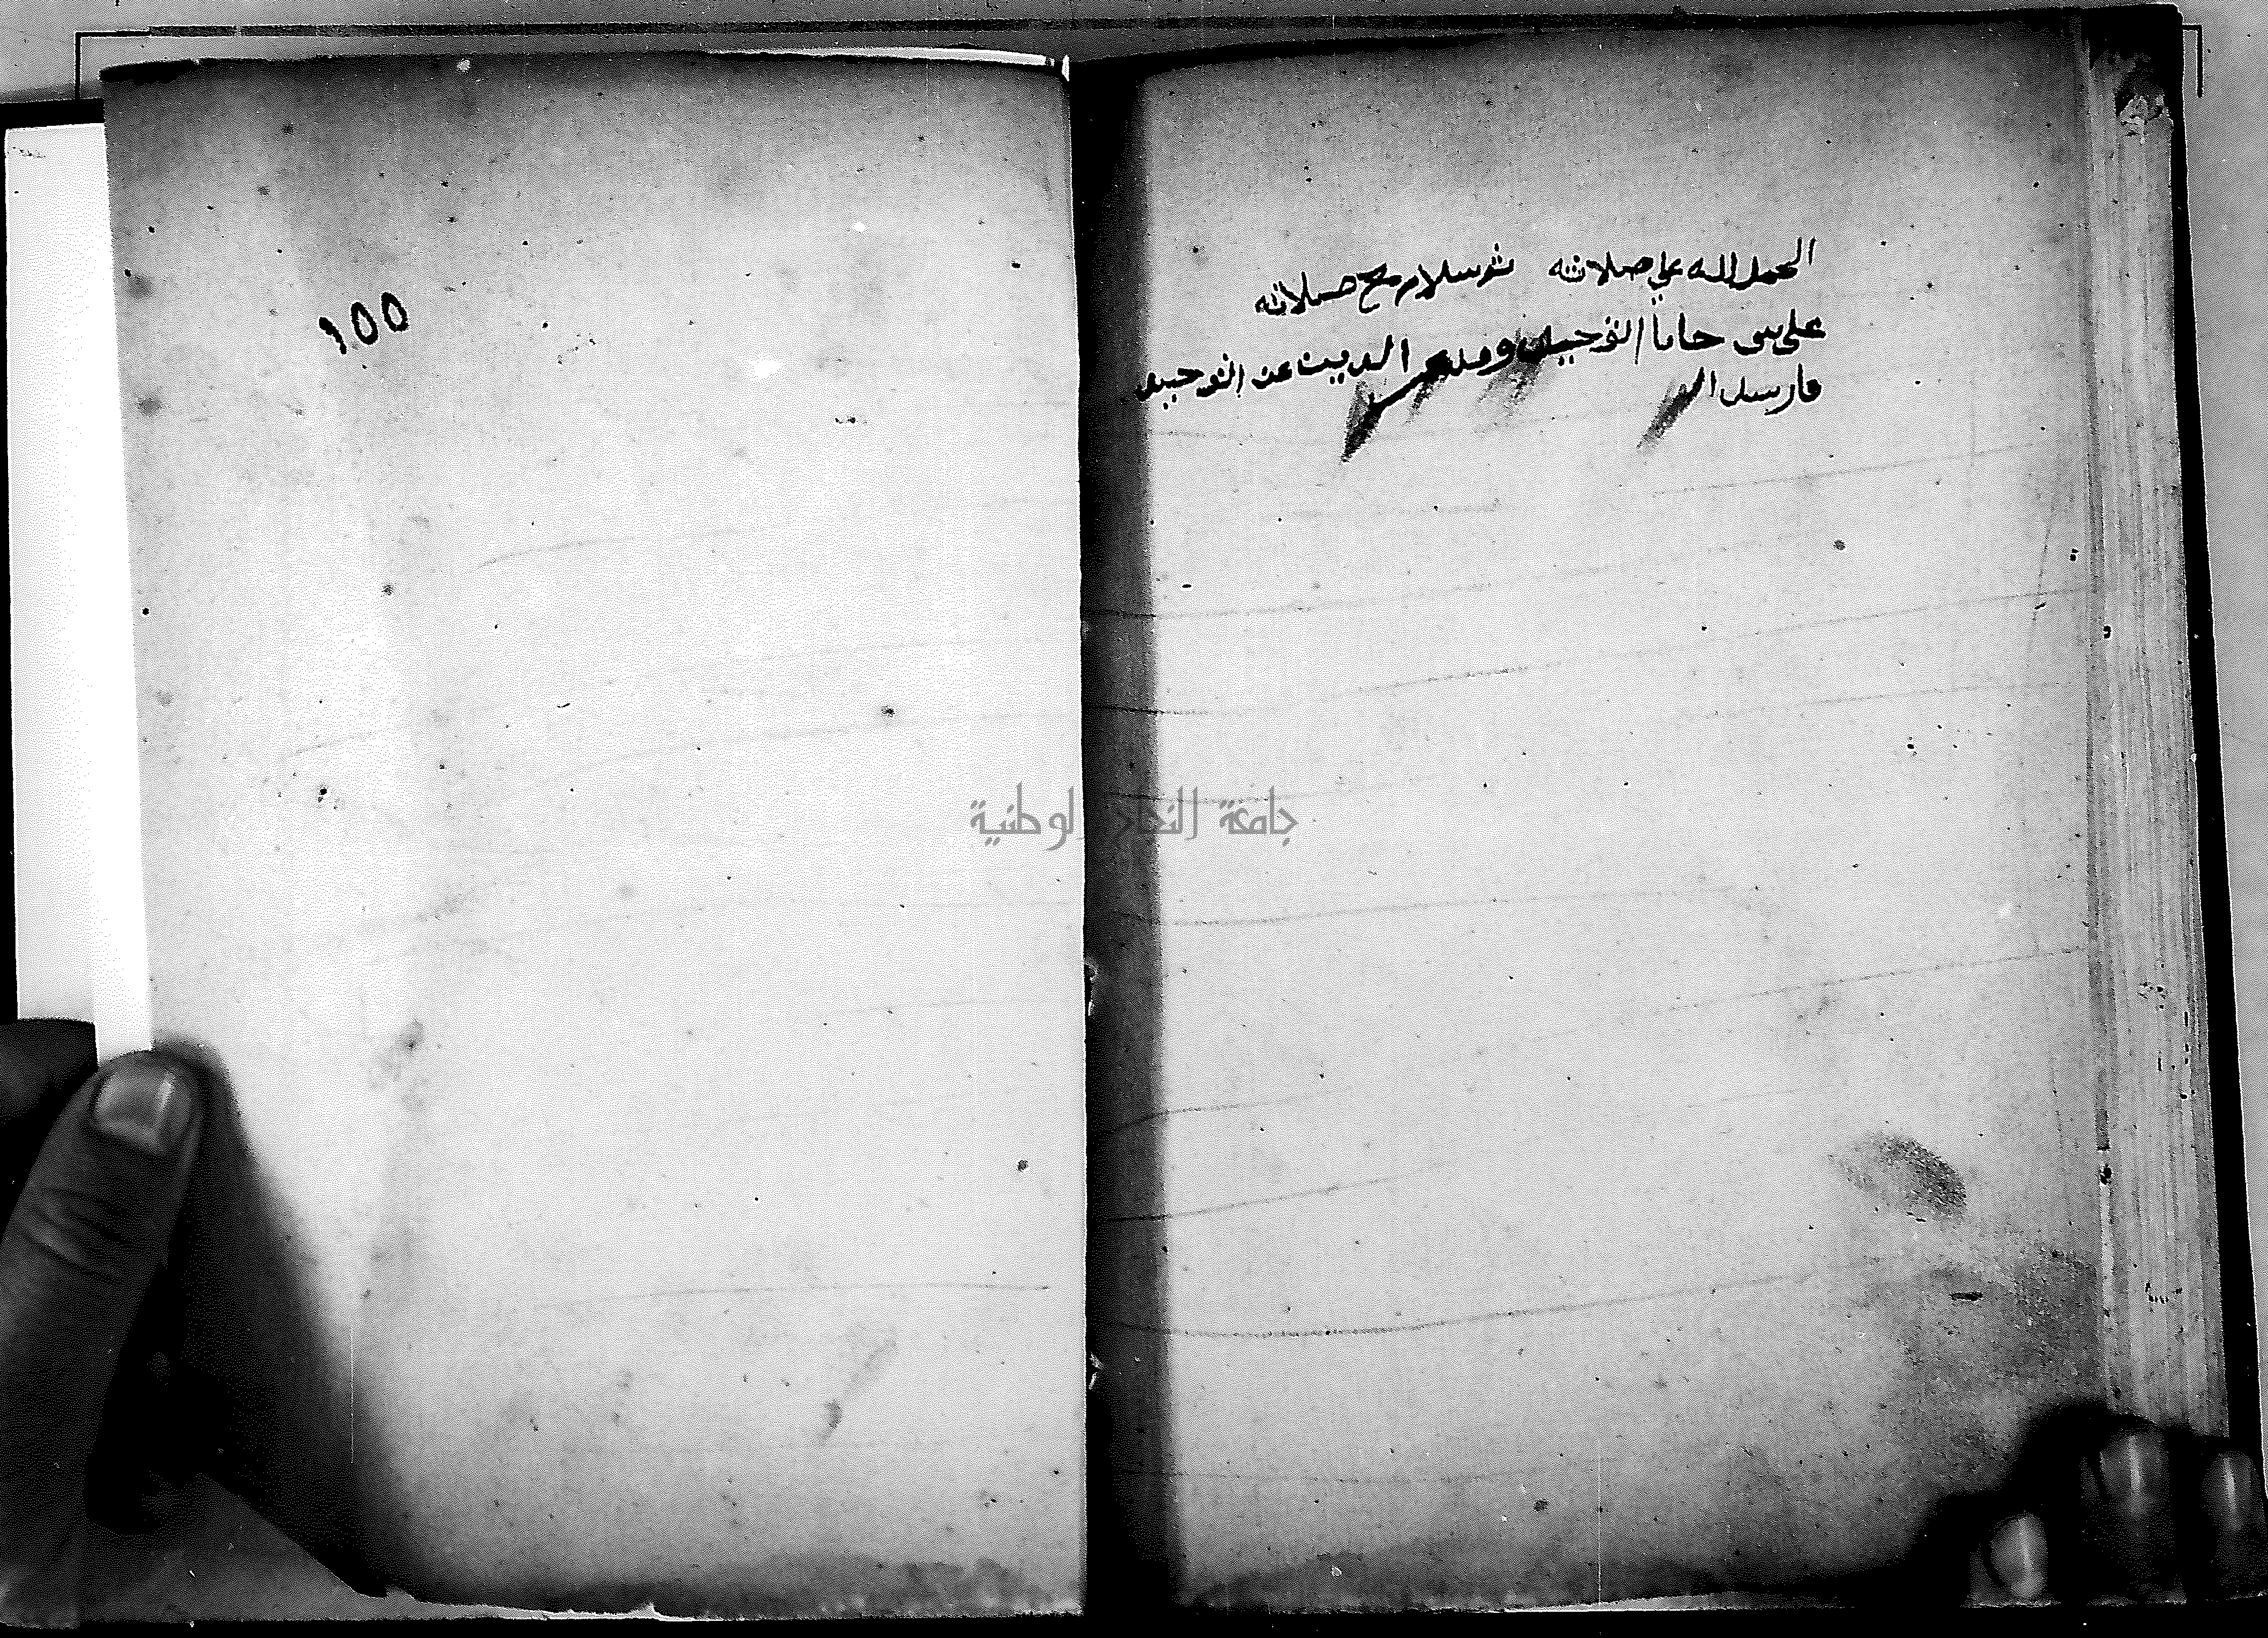 الحمد لله علي صلاته ثم سلام مع صلاته
على نبى جاءنا بالتوحيد وقد الدين عن التوحيد
فارسل
١٥٥
جامعة النجاح الوطنية